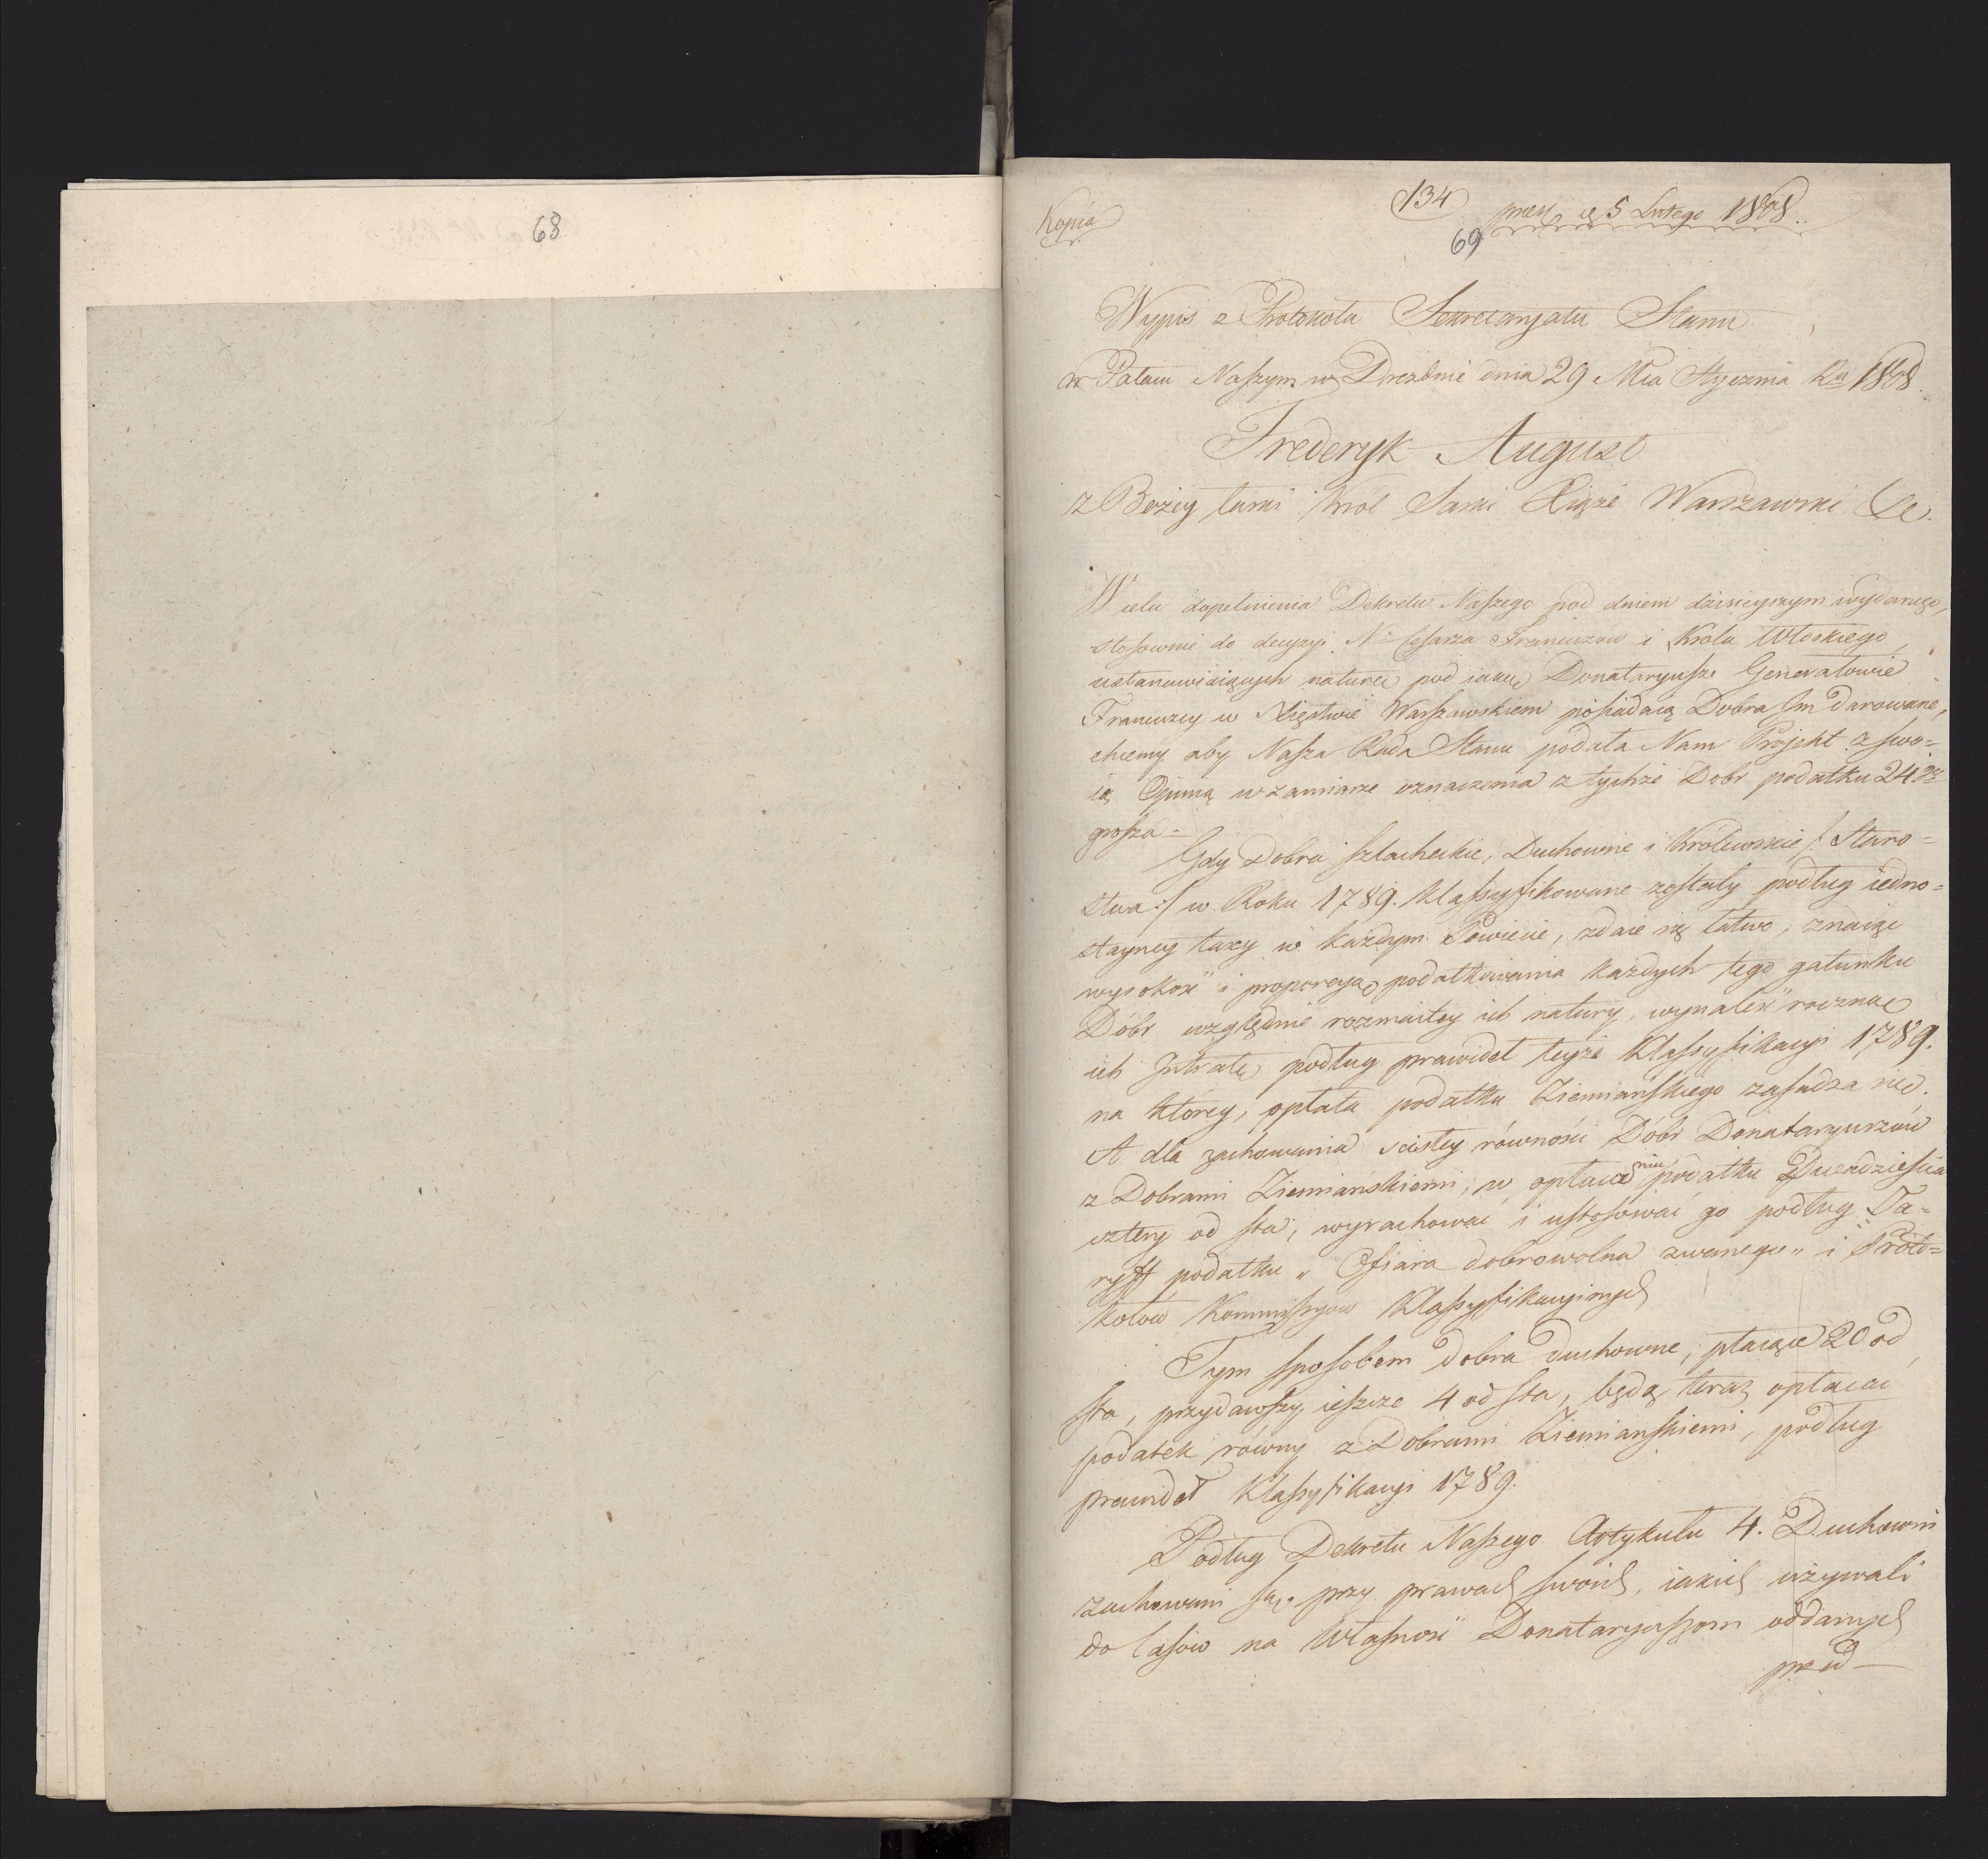 68
134
Kopia
prez. d. 5 Lutego 1808.
69
Wypis z Protokołu Sekretaryatu Stanu
w Pałacu Naszym w Dreźnie dnia 29 Mca Stycznia Ru 1808.
Frederyk August
z Bożey łaski Król Saski Xiąże Warszawski &c.
W celu dopełnienia Dekretu Naszego pod dniem dzisieyszym wydanego,
stosownie do decyzyi N. Cesarza Francuzów i Króla Włoskiego,
ustanawiaiących naturę pod iaką Donataryusze Generałowie
Francuzcy w Xięstwie Warszawskiem posiadaią Dobra Im darowane,
chcemy aby Nasza Rada Stanu podała Nam Projekt z swo=
ią Opinią w zamiarze oznaczenia z tychże Dobr podatku 24go
grosza.
Gdy Dobra szlacheckie, Duchowne i Królewskie /: Staro=
stwa :/ w Roku 1789. klassyfikowane zostały podług iedno=
stayney taxy w każdym Powiecie, zdaie się łatwo, znaiąc
wysokość i proporcyą podatkowania każdych tego gatunku
Dóbr względnie rozmaitey ich natury, wynaleść roczną
ich Intratę podług prawideł teyże Klassyfikacyi 1789.
na którey, opłata podatku Ziemiańskiego zasadza się.
A dla zachowania ścisłey równości Dóbr Donataryuszów
z Dobrami Ziemiańskiemi, w opłaceniu podatku Dwadzieścia
cztery od sta, wyrachować i ustosować go podług Ta=
ryff podatku „Ofiara dobrowolna zwanego" i Proto=
kołów Kommissyów Klassyfikacyinych
Tym sposobem Dobra Duchowne, płacące 20 od
sta, przydawszy ieszcze 4 od sta, będą teraz opłacać
podatek równy z Dobrami Ziemianskiemi, podług
prawideł Klassyfikacyi 1789.
Podług Dekretu Naszego Artykułu 4. Duchowni
zachowani są przy prawach swoich, iakich używali
do lasów na Własność Donataryuszom oddanych
przed—